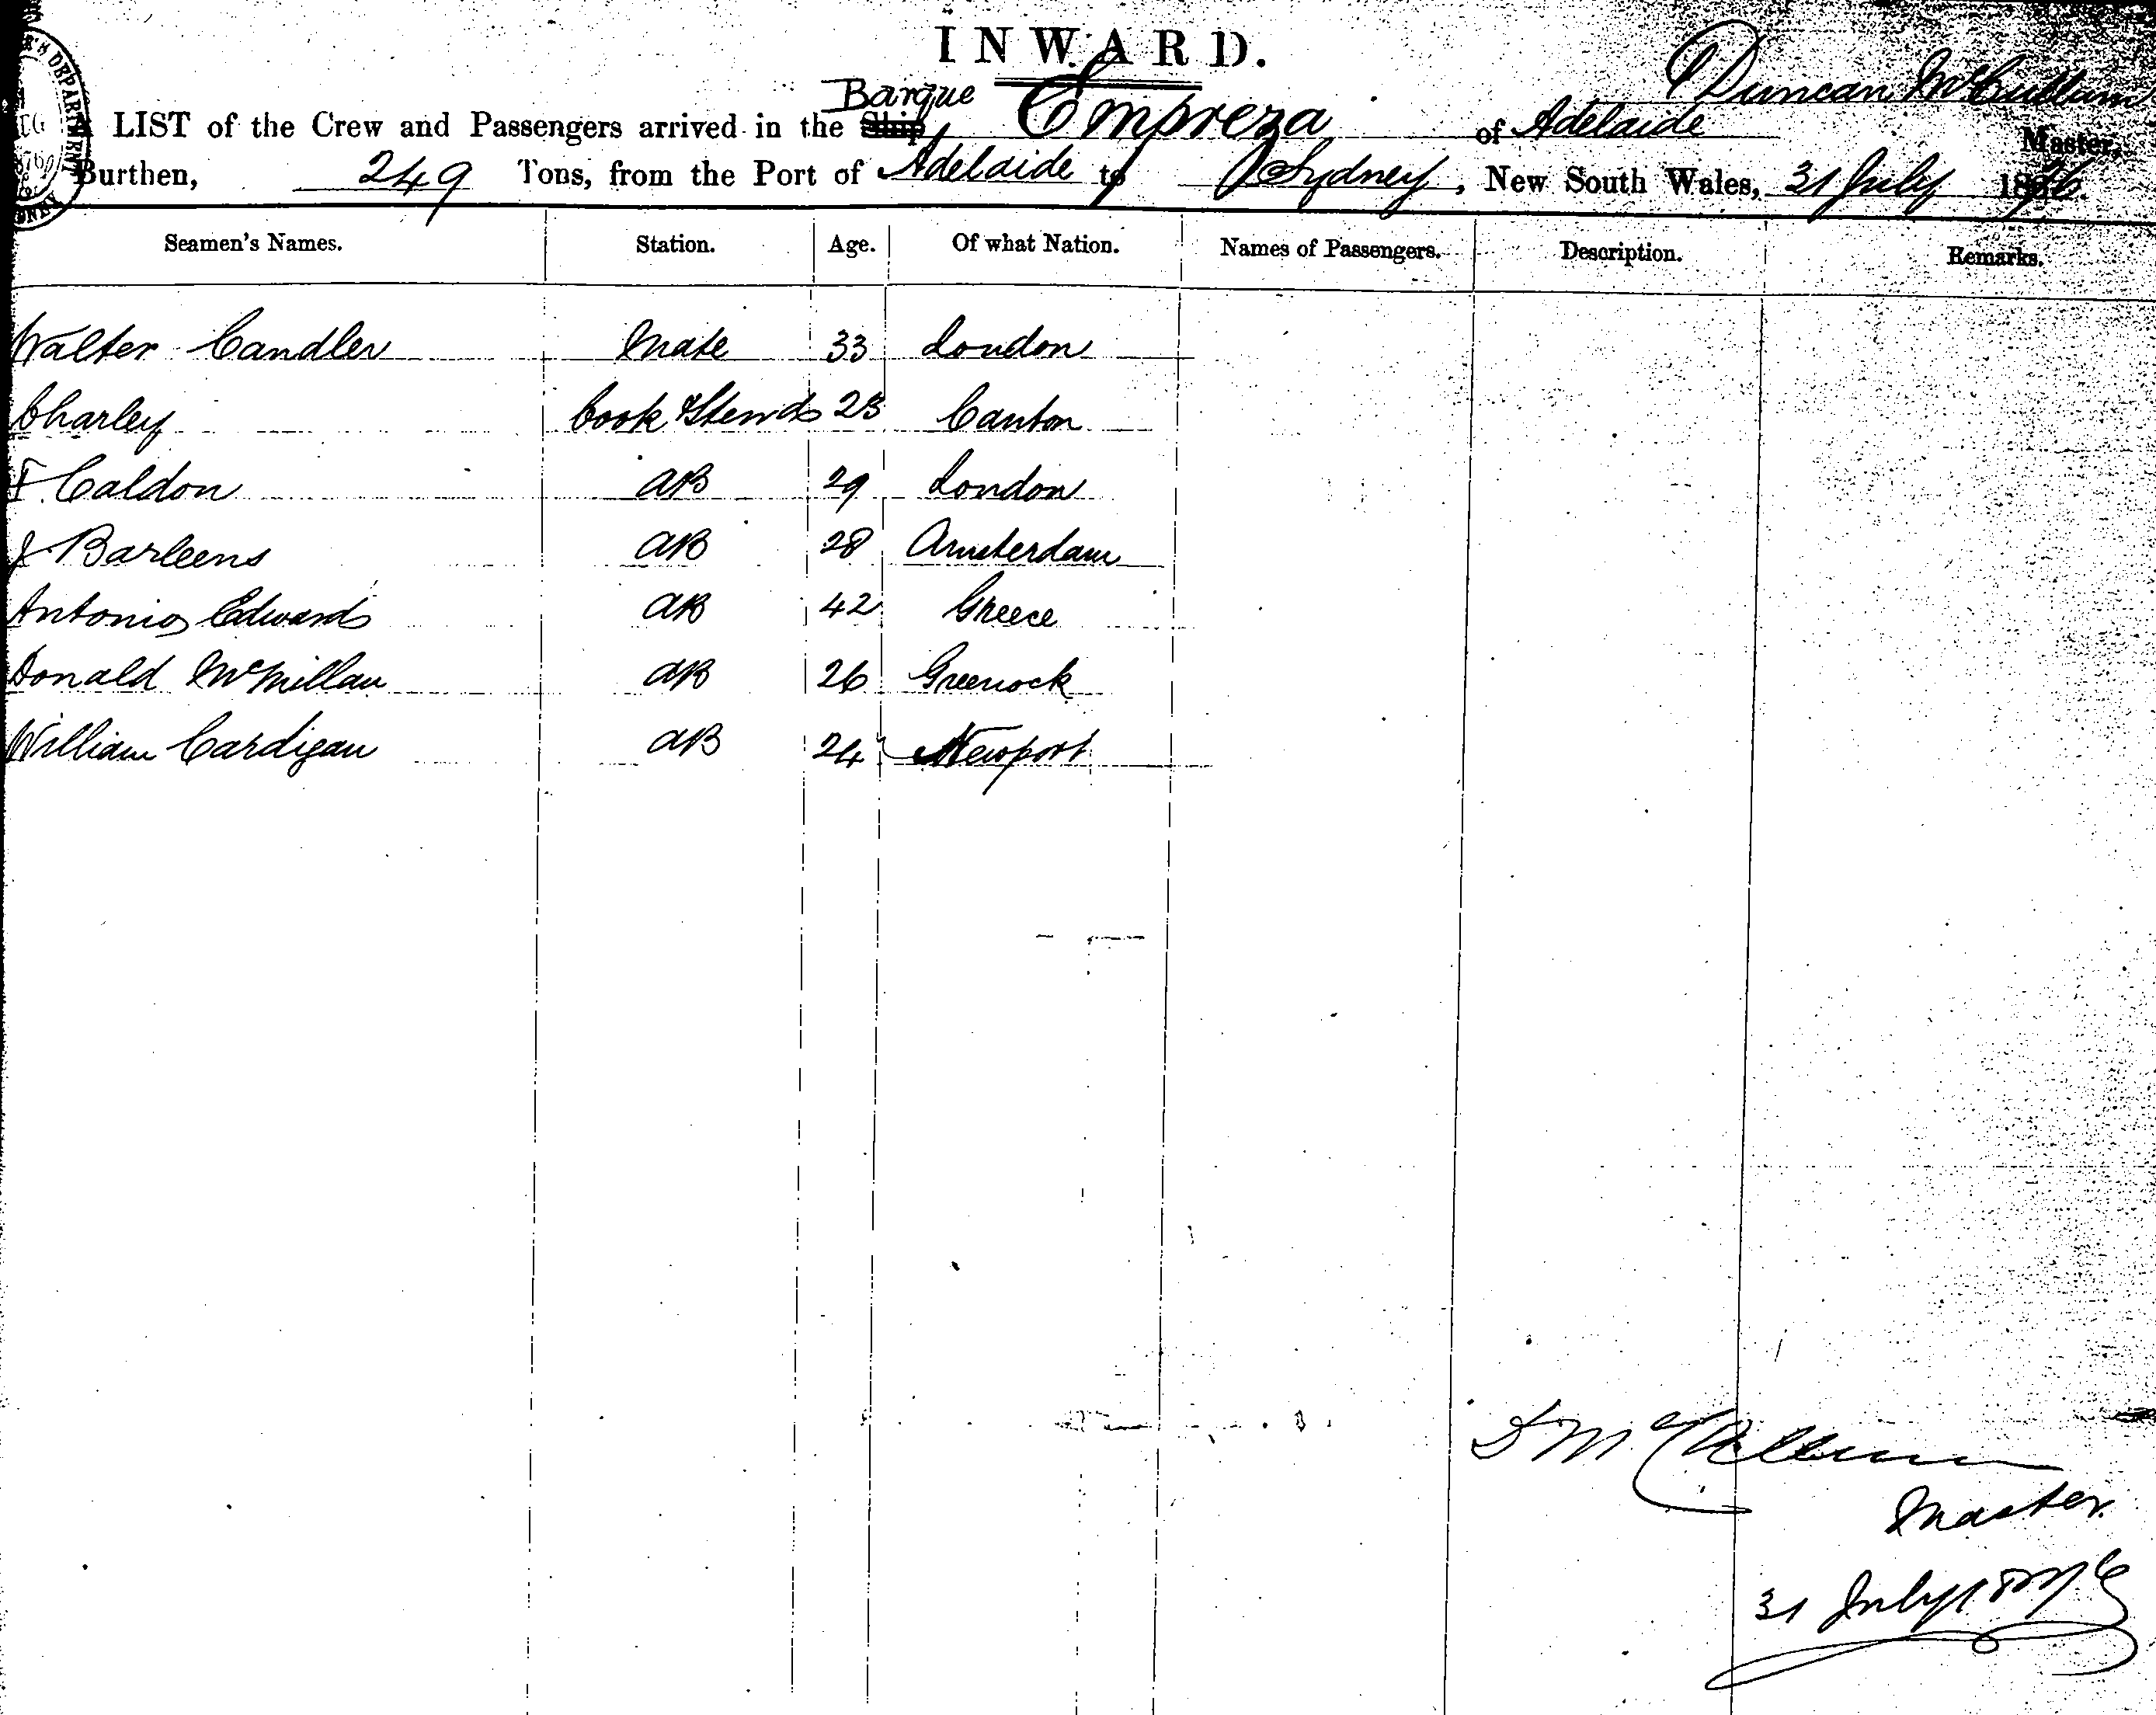 INWARD.
Duncan McCullum
Barque
A LIST of the Crew and Passengers arrived in the Ship Empreza of Adelaide Master,
Burthen, 249 Tons, from the Port of Adelaide to Sydney, New South Wales, 31 July 1876.
Seamen's Names. Station. Age. Of what Nation. Names of Passengers. Description. Remarks.
Walter Candler Mate 33 London
Charley Cook & Stewd 23 Canton
F. Caldon AB 29 London
J Barleens AB 28 Amsterdam
Antonio Edwards AB 42 Greece
Donald McMillan AB 26 Greenock
William Cardigan AB 24 Newport
D McCallum
Master.
31 July 1876